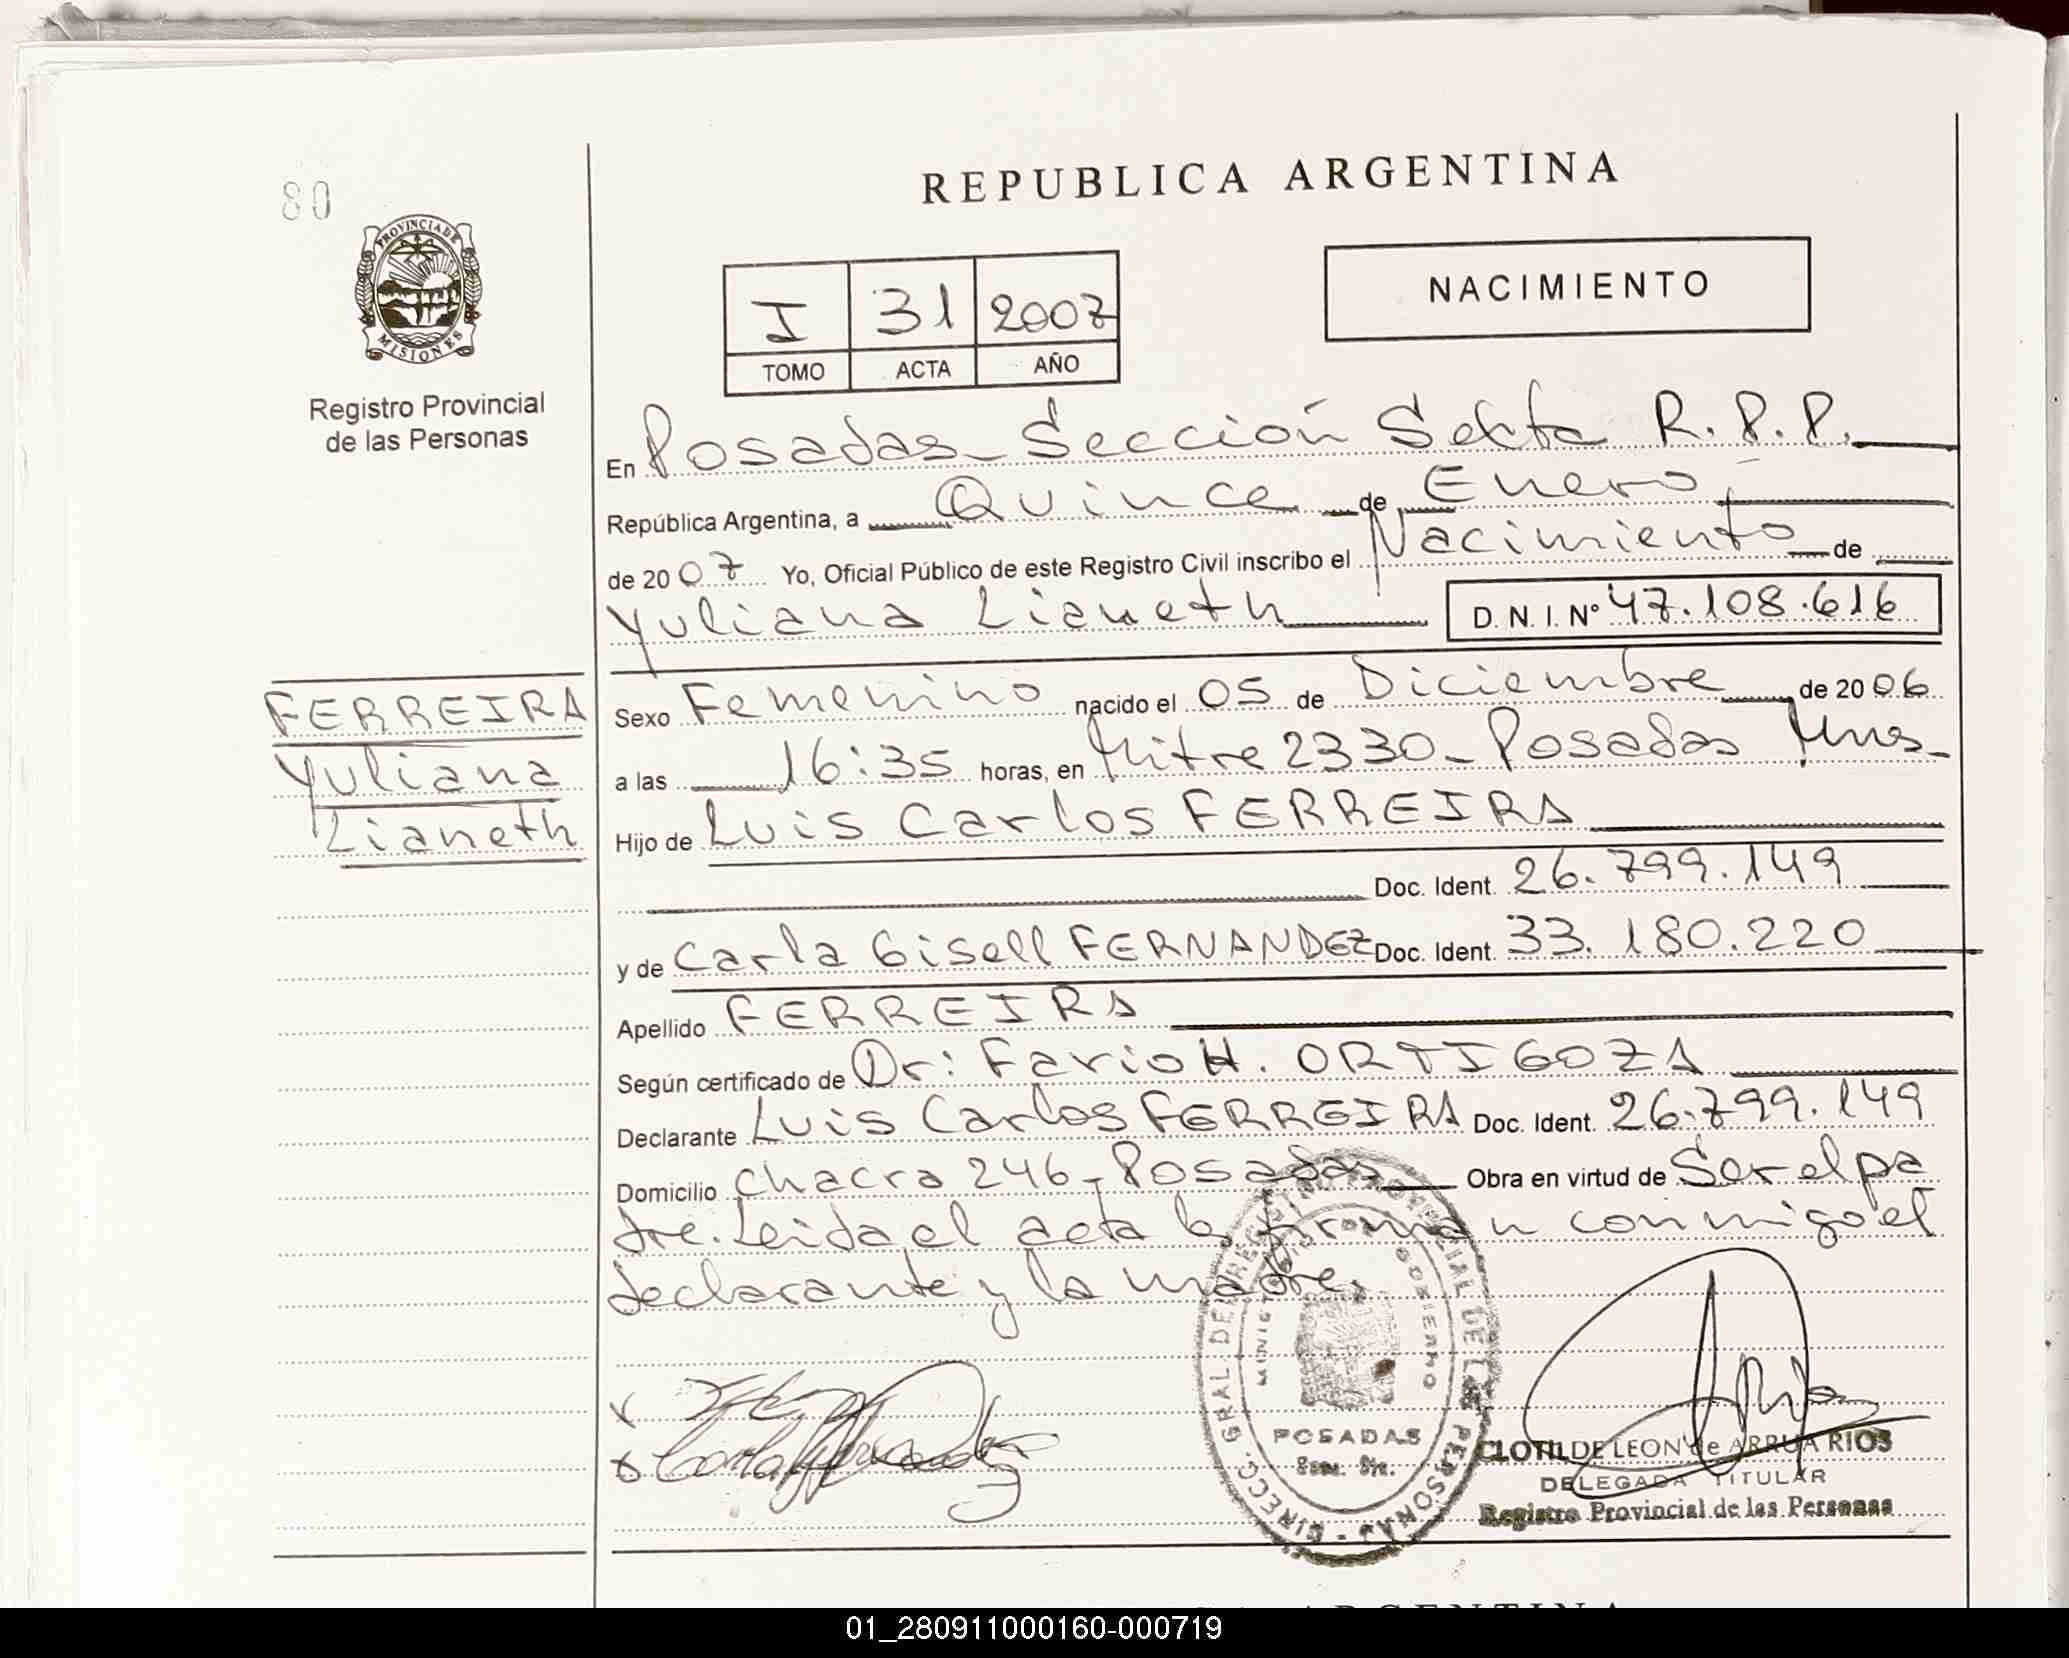 80
REPUBLICA ARGENTINA
PROVINCIA DE
MISIONES
Registro Provincial
de las Personas
I 31 2007
TOMO ACTA AÑO
NACIMIENTO
En Posadas - Sección Sexta R.P.P.
República Argentina, a Quince de Enero
de 2007 Yo, Oficial Público de este Registro Civil inscribo el Nacimiento de
Yuliana Lianeth D. N. I. Nº 47.108.616
FERREIRA
Yuliana
Lianeth
Sexo Femenino nacido el 05 de Diciembre de 2006
a las 16:35 horas, en Mitre 2330 - Posadas Mns -
Hijo de Luis Carlos FERREIRA
Doc. Ident. 26.799.149
y de Carla Gisell FERNANDEZ Doc. Ident. 33.180.220
Apellido FERREIRA
Según certificado de Dr: Fario H. ORTIGOZA
Declarante Luis Carlos FERREIRA Doc. Ident. 26.799.149
Domicilio Chacra 246 - Posadas Obra en virtud de Ser el pa
dre. Leida el acta la firman conmigo el
declarante y la madre.
DIRECC. GRAL. DEL REGISTRO PROVINCIAL DE LAS PERSONAS
GOBIERNO
POSADAS
CLOTILDE LEON de ARRUA RIOS
DELEGADA TITULAR
Registro Provincial de las Personas
01_280911000160-000719